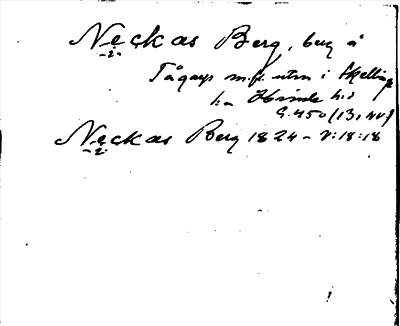 Neckas Berg, berg å
Tågarp m.fl. utm i Skellinge
hn Himle hd
G.450 (13, NV)
Neckas Berg 1824 - V:18:18